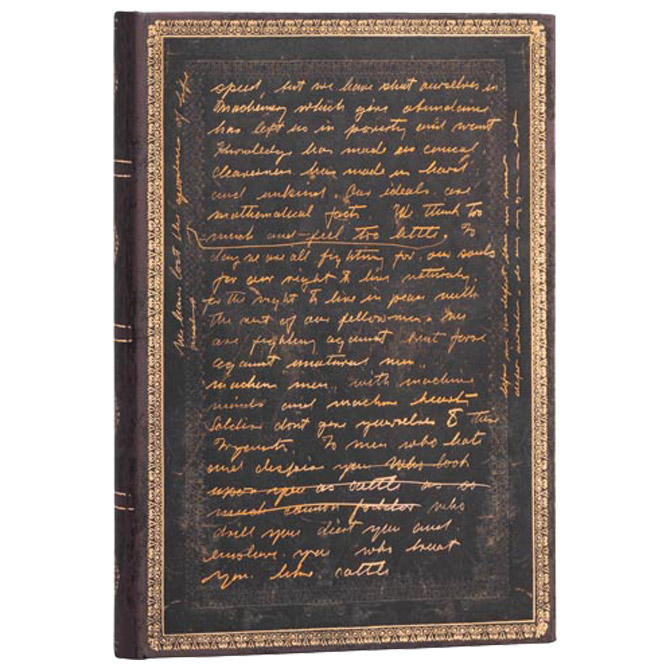 speed, but we have shut ourselves in
Machinery which gives abundance
has left us in poverty and want
Knowledge has made us cynical
cleverness has made us hard
and unkind. Our ideals are
mathematical facts. We think too
much and feel too little. To
day we are all fighting for our souls
for our right to live naturally
for the right to live in peace with
the rest of our fellowmen. We
are fighting against brut force
against unatural men,
machine men, with machine
minds and machine hearts
Soldiers dont give yourselves to these
To men who hate
and despise you who look
upon you as cattle as so
much cannon fodder who
drill you diet you and
enslave you who treat
you like cattle
We have lost the of life